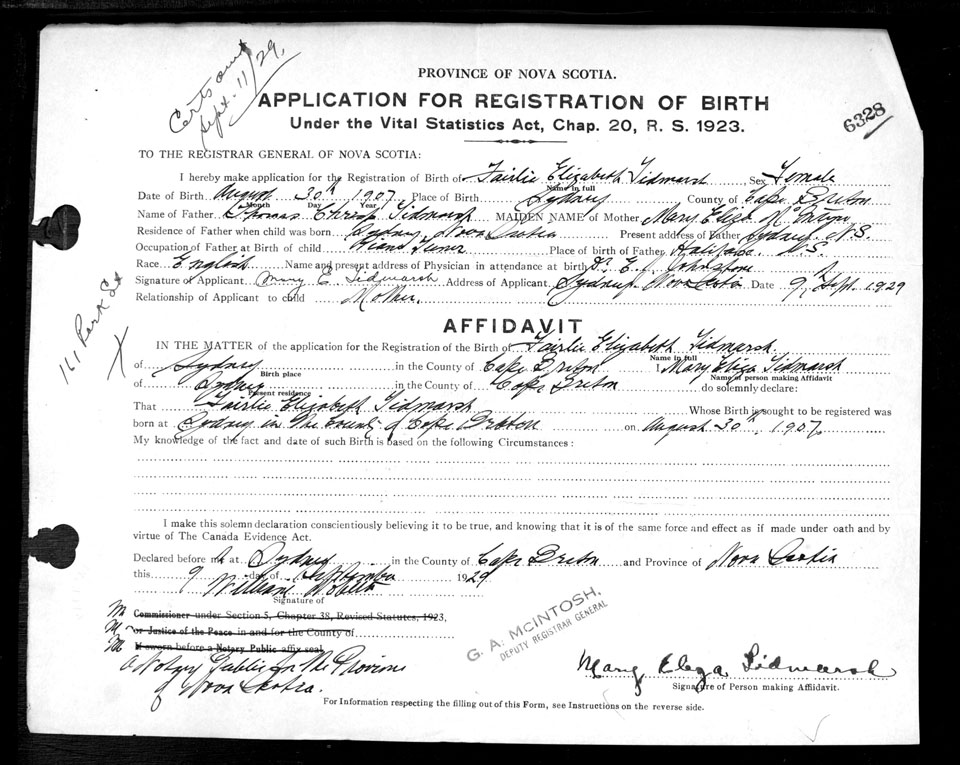 Certs out
Sept. 11/29.
PROVINCE OF NOVA SCOTIA.
APPLICATION FOR REGISTRATION OF BIRTH
Under the Vital Statistics Act, Chap. 20, R. S. 1923.
6328
TO THE REGISTRAR GENERAL OF NOVA SCOTIA:
I hereby make application for the Registration of Birth of Fairlie Elizabeth Tidmarsh Sex Female
Name in full
Date of Birth August 30th 1907 Place of Birth Sydney County of Cape Breton
Month Day Year
Name of Father Thomas Tidmarsh MAIDEN NAME of Mother Mary Eliza
Residence of Father when child was born Sydney, Nova Scotia Present address of Father Sydney N.S.
Occupation of Father at Birth of child Piano Tuner Place of birth of Father Halifax N.S.
Race English Name and present address of Physician in attendance at birth Dr. E. Johnstone
Signature of Applicant Mary E. Tidmarsh Address of Applicant Sydney Nova Scotia Date 9 Sept. 1929
Relationship of Applicant to child Mother.
161 Park St
X
AFFIDAVIT
IN THE MATTER of the application for the Registration of the Birth of Fairlie Elizabeth Tidmarsh
Name in full
of Sydney in the County of Cape Breton I Mary Eliza Tidmarsh
Birth place Name of person making Affidavit
of Sydney in the County of Cape Breton do solemnly declare:
Present residence
That Fairlie Elizabeth Tidmarsh Whose Birth is sought to be registered was
born at Sydney in the County of Cape Breton on August 30th, 1907
My knowledge of the fact and date of such Birth is based on the following Circumstances:
I make this solemn declaration conscientiously believing it to be true, and knowing that it is of the same force and effect as if made under oath and by
virtue of The Canada Evidence Act.
Declared before me at Sydney in the County of Cape Breton and Province of Nova Scotia
this 9 day of September 1929
William
Signature of
Commissioner under Section 5, Chapter 38, Revised Statutes, 1923,
or Justice of the Peace in and for the County of
If sworn before a Notary Public affix seal
A Notary Public for The Province
of Nova Scotia.
G. A. McINTOSH,
DEPUTY REGISTRAR GENERAL
Mary Eliza Tidmarsh
Signature of Person making Affidavit.
For Information respecting the filling out of this Form, see Instructions on the reverse side.